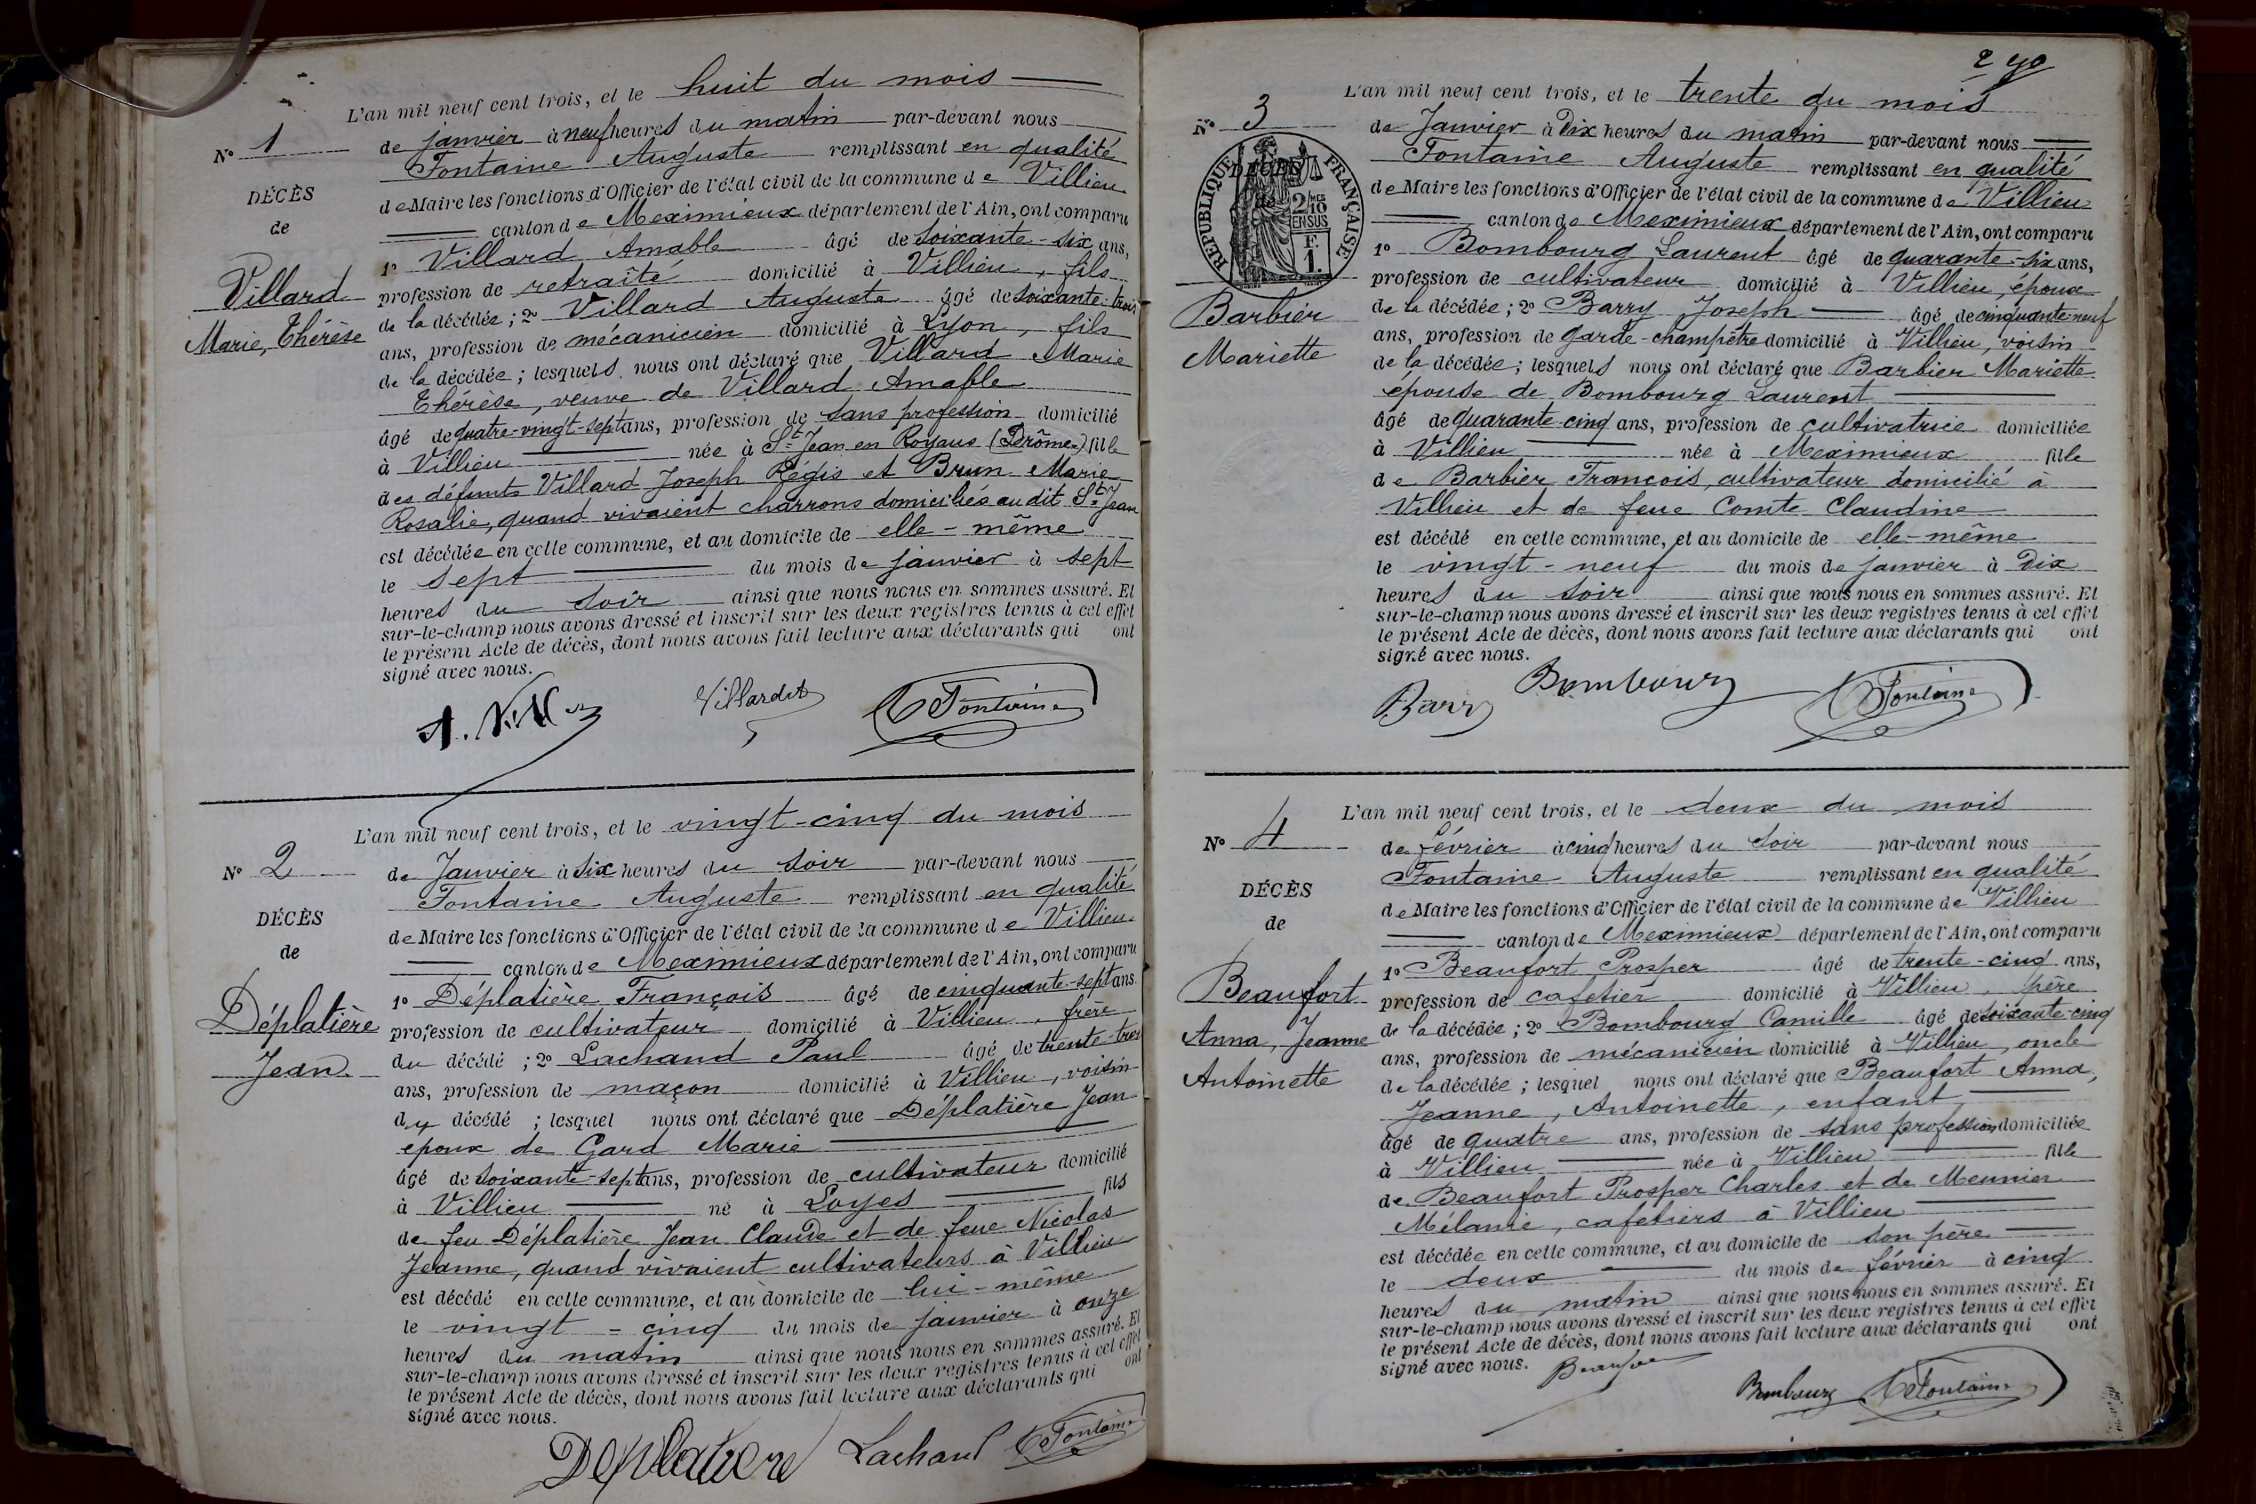 L'an mil neuf cent trois, et le huit du mois
No 1
de janvier à neuf heures du matin par-devant nous
Fontaine Auguste remplissant en qualité
DÉCÈS
de Maire les fonctions d'Officier de l'état civil de la commune de Villieu
de
canton de Meximieux département de l'Ain, ont comparu
1o Villard Amable âgé de soixante-six ans,
Villard
profession de retraité domicilié à Villieu, fils
Marie, Thérèse
de la décédée ; 2o Villard Auguste âgé de soixante-trois
ans, profession de mécanicien domicilié à Lyon, fils
de la décédée ; lesquels nous ont déclaré que Villard Marie
Thérèse, veuve de Villard Amable
âgé de quatre-vingt-sept ans, profession de sans profession domicilié
à Villieu née à St Jean en Royans (Drôme) fille
des défunts Villard Joseph Régis et Brun Marie
Rosalie, quand vivaient charrons domiciliés au dit St Jean
est décédée en cette commune, et au domicile de elle-même
le sept du mois de janvier à sept
heures du soir ainsi que nous nous en sommes assuré. Et
sur-le-champ nous avons dressé et inscrit sur les deux registres tenus à cet effet
le présent Acte de décès, dont nous avons fait lecture aux déclarants qui ont
signé avec nous.
Fontaine
L'an mil neuf cent trois, et le vingt-cinq du mois
No 2
de Janvier à six heures du soir par-devant nous
Fontaine Auguste remplissant en qualité
DÉCÈS
de Maire les fonctions d'Officier de l'état civil de la commune de Villieu
de
canton de Meximieux département de l'Ain, ont comparu
1o Déplatière François âgé de cinquante-sept ans
Déplatière
profession de cultivateur domicilié à Villieu, frère
Jean
du décédé ; 2o Lachand Paul âgé de trente-trois
ans, profession de maçon domicilié à Villieu, voisin
du décédé ; lesquel nous ont déclaré que Déplatière Jean
epoux de Gard Marie
âgé de soixante-sept ans, profession de cultivateur domicilié
à Villieu né à Loyes fils
de feu Déplatière Jean Claude et de feue Nicolas
Jeanne, quand vivaient cultivateurs à Villieu
est décédé en cette commune, et au domicile de lui-même
le vingt-cinq du mois de janvier à onze
heures du matin ainsi que nous nous en sommes assuré. Et
sur-le-champ nous avons dressé et inscrit sur les deux registres tenus à cet effet
le présent Acte de décès, dont nous avons fait lecture aux déclarants qui ont
signé avec nous.
Deplatiere Lachand Fontaine
L'an mil neuf cent trois, et le trente du mois
No 3
de Janvier à Dix heures du matin par-devant nous
Fontaine Auguste remplissant en qualité
DÉCÈS
RÉPUBLIQUE FRANÇAISE
2/10 EN SUS
F. 1.
de Maire les fonctions d'Officier de l'état civil de la commune de Villieu
de
canton de Meximieux département de l'Ain, ont comparu
1o Bombourg Laurent âgé de quarante-six ans,
profession de cultivateur domicilié à Villieu, époux
Barbier
de la décédée ; 2o Barry Joseph âgé de cinquante neuf
Mariette
ans, profession de garde-champêtre domicilié à Villieu, voisin
de la décédée ; lesquels nous ont déclaré que Barbier Mariette
epouse de Bombourg Laurent
âgé de quarante-cinq ans, profession de cultivatrice domiciliée
à Villieu née à Meximieux fille
de Barbier François, cultivateur domicilié à
Villieu et de feue Comte Claudine
est décédé en cette commune, et au domicile de elle-même
le vingt-neuf du mois de janvier à Dix
heures du soir ainsi que nous nous en sommes assuré. Et
sur-le-champ nous avons dressé et inscrit sur les deux registres tenus à cet effet
le présent Acte de décès, dont nous avons fait lecture aux déclarants qui ont
signé avec nous.
Barry Bombourg Fontaine
L'an mil neuf cent trois, et le deux du mois
No 4
de février à cinq heures du soir par-devant nous
Fontaine Auguste remplissant en qualité
DÉCÈS
de Maire les fonctions d'Officier de l'état civil de la commune de Villieu
de
canton de Meximieux département de l'Ain, ont comparu
1o Beaufort Prosper âgé de trente-cinq ans,
Beaufort
profession de cafetier domicilié à Villieu, père
Anna, Jeanne
de la décédée ; 2o Bombourg Camille âgé de soixante-cinq
Antoinette
ans, profession de mécanicien domicilié à Villieu, oncle
de la décédée ; lesquel nous ont déclaré que Beaufort Anna,
Jeanne, Antoinette, enfant
âgé de quatre ans, profession de sans profession domiciliée
à Villieu née à Villieu fille
de Beaufort Prosper Charles et de Meunier
Mélanie, cafetiers à Villieu
est décédée en cette commune, et au domicile de son père
le deux du mois de février à cinq
heures du matin ainsi que nous nous en sommes assuré. Et
sur-le-champ nous avons dressé et inscrit sur les deux registres tenus à cet effet
le présent Acte de décès, dont nous avons fait lecture aux déclarants qui ont
signé avec nous.
Bombourg Fontaine